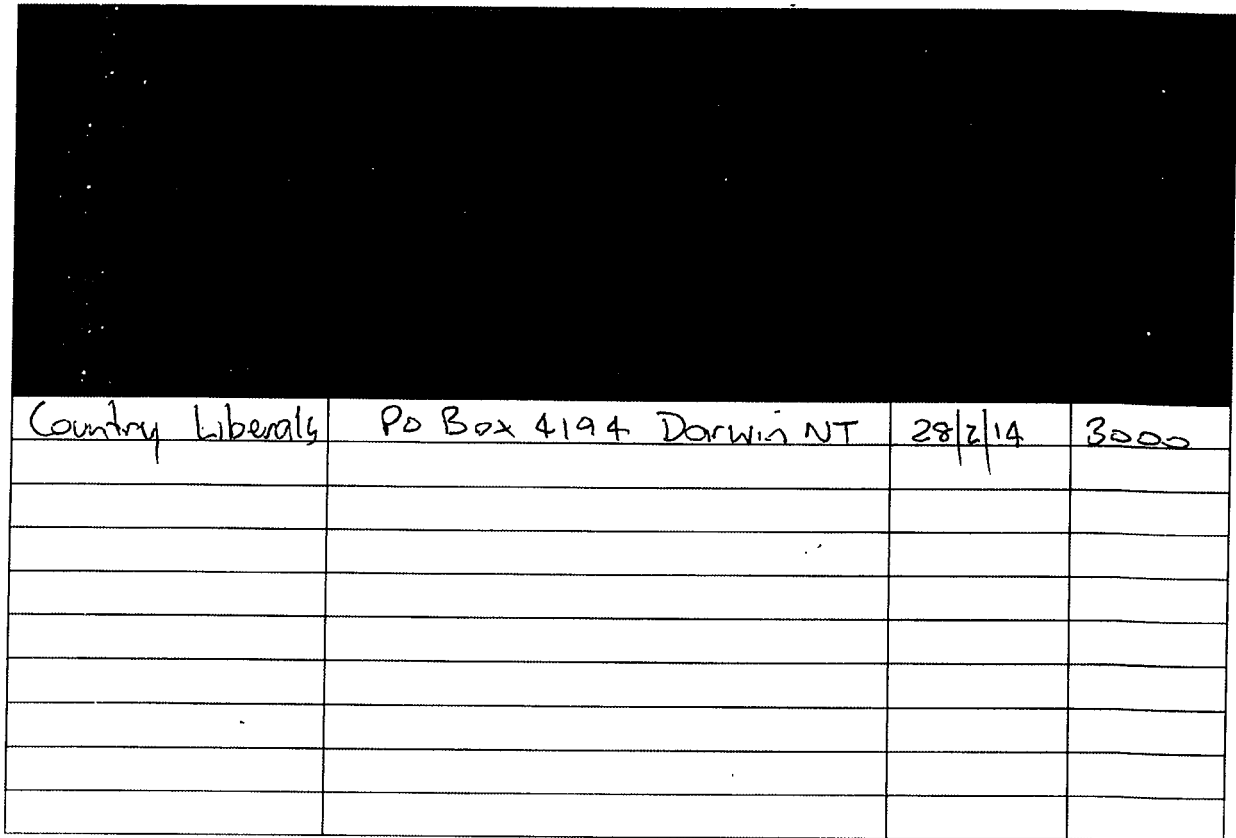 Country Liberals PO Box 4194 Darwin NT 28/2/14 3000